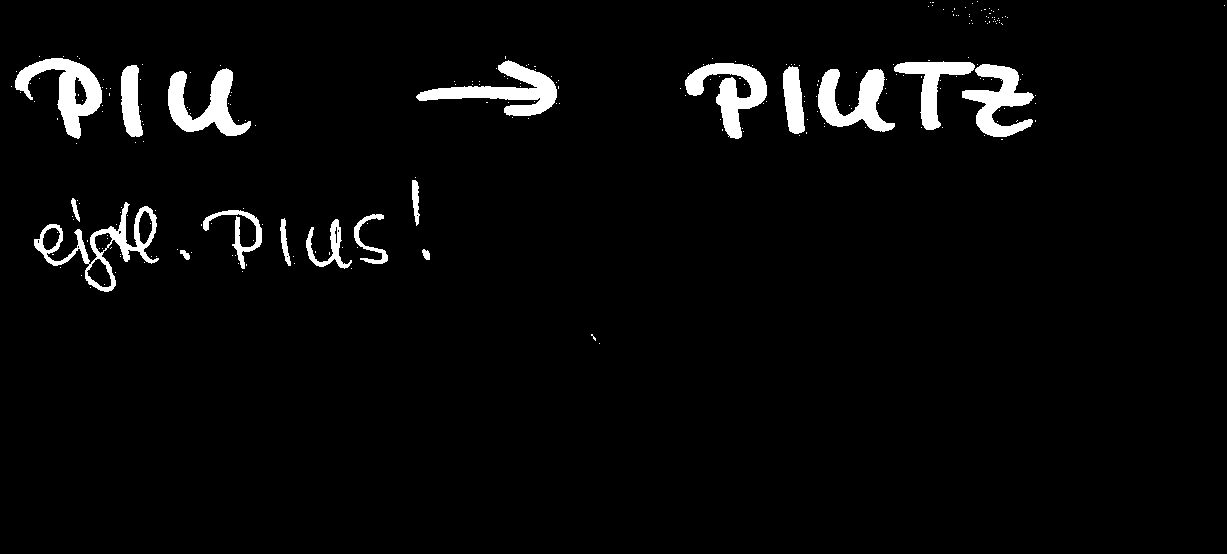 PIU → PIUTZ
eigtl. PIUS!